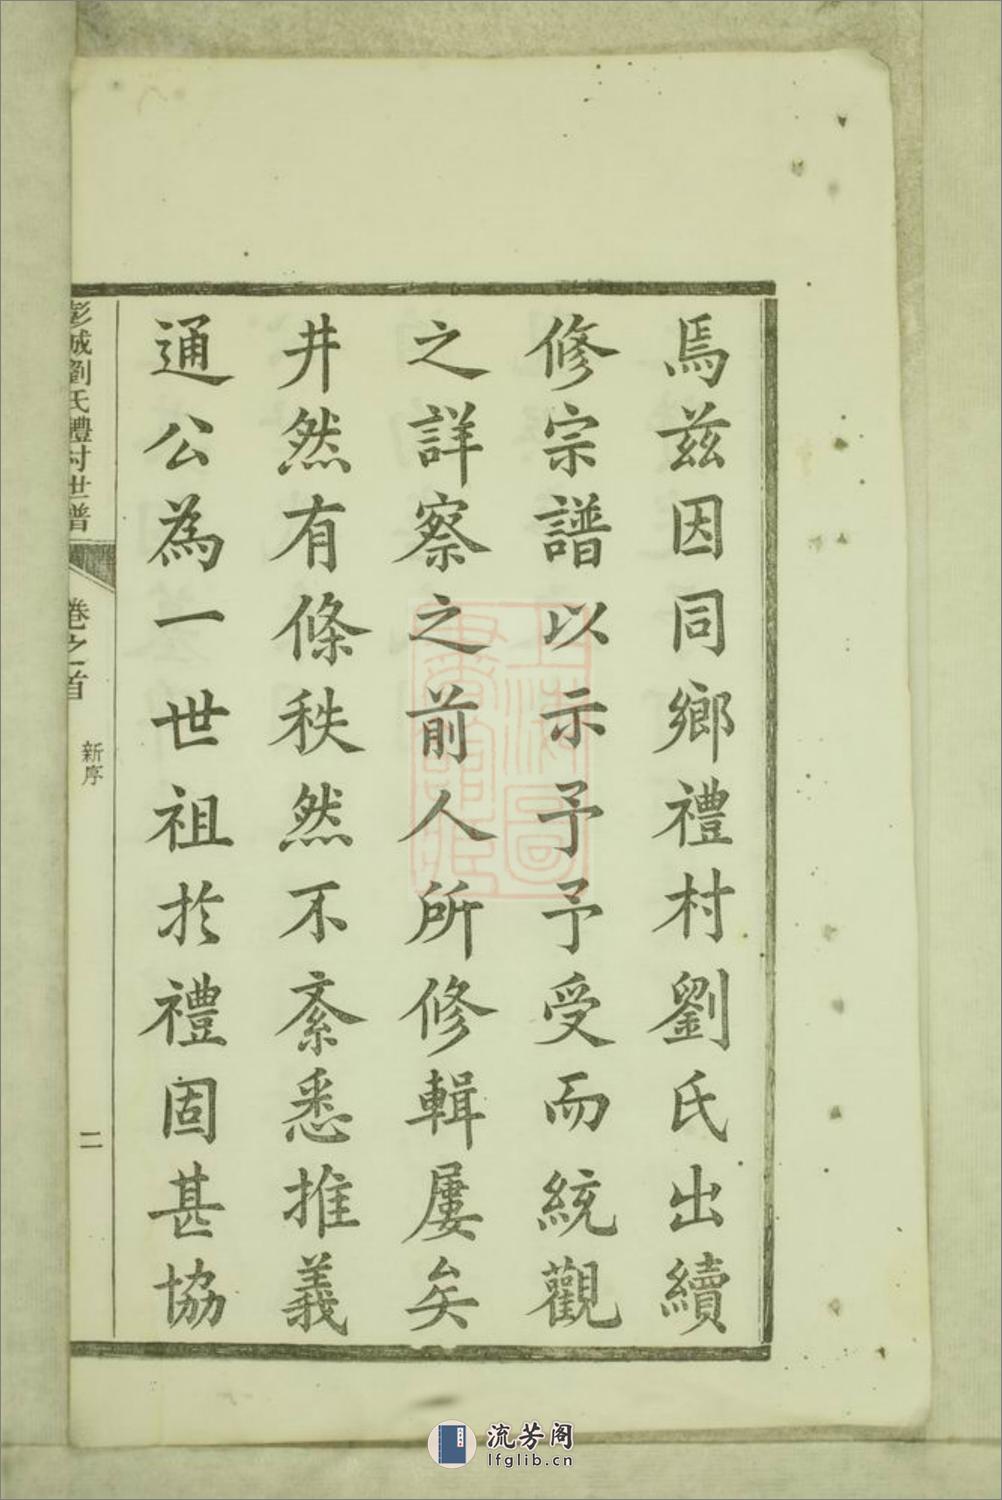 焉兹因同鄉禮村劉氏出續
修宗譜以示予予受而統觀
之詳察之前人所修輯屢矣
井然有條秩然不紊悉推義
通公為一世祖於禮固甚協
彭城劉氏禮村世譜
卷之首
新序
二
流芳阁
lfglib.cn